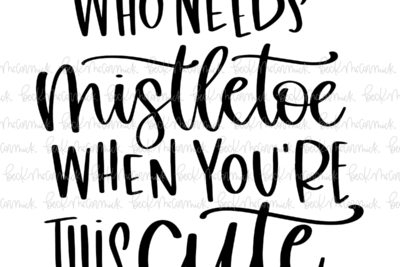 WHO NEEDS
mistletoe
WHEN YOU'RE
THIS cute